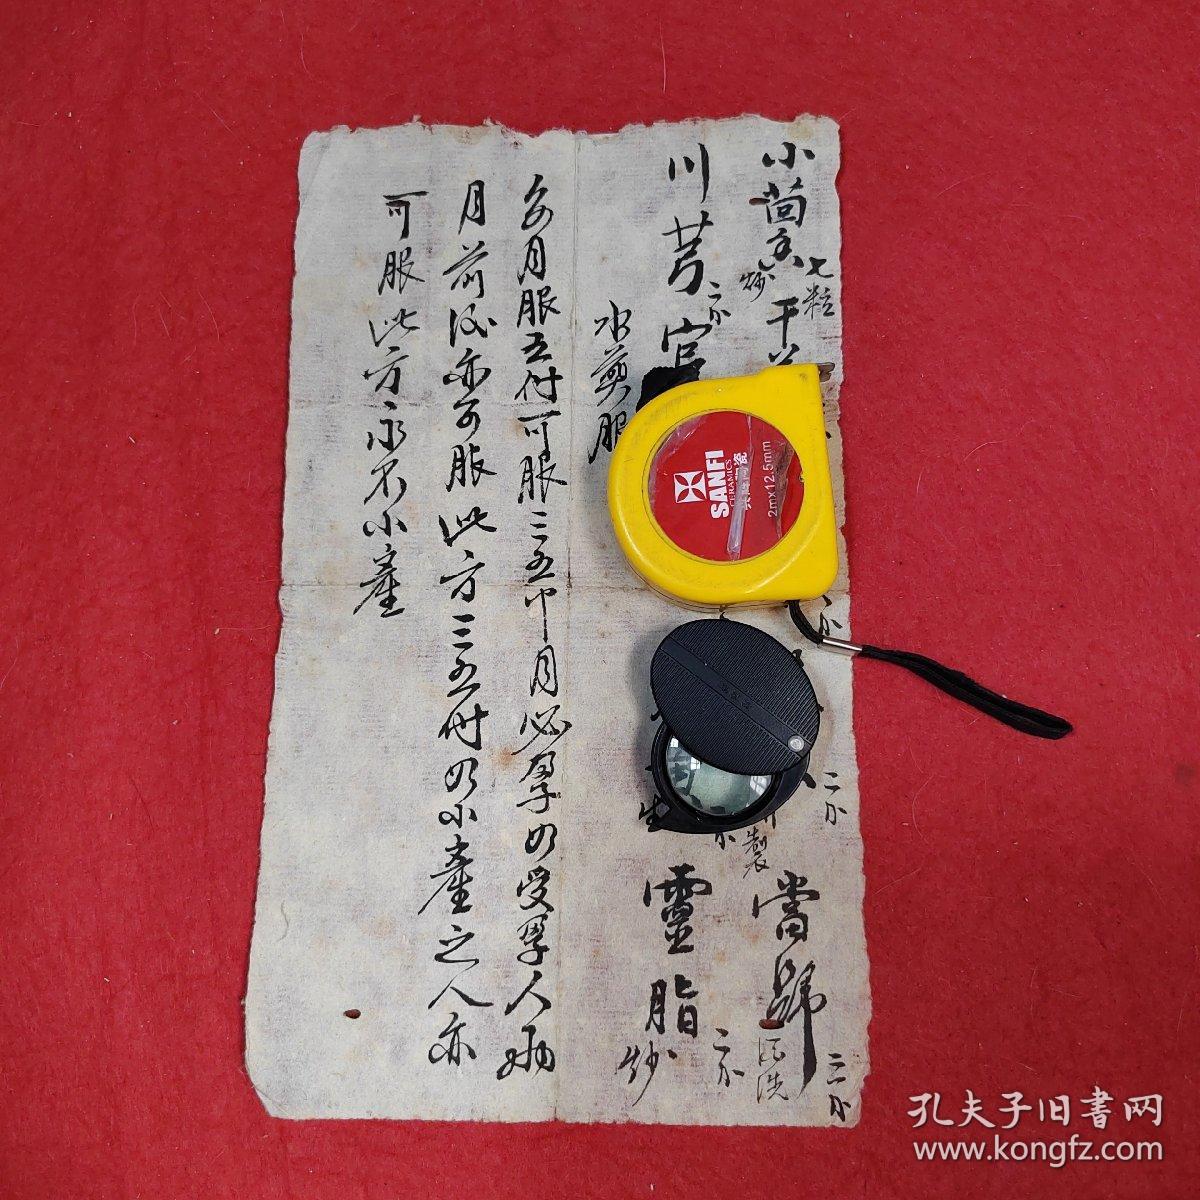 小茴香七粒炒 干
二分 製 當歸酒洗 三分
川芎二分 官 生 靈脂炒 二分
水煎服
每月服五付可服三五个月必孕如受孕人
月前後亦可服此方三五付如小產之人亦
可服此方永不小產
SANFI
CERAMICS
2mx12.5mm
孔夫子旧書网
www.kongfz.com